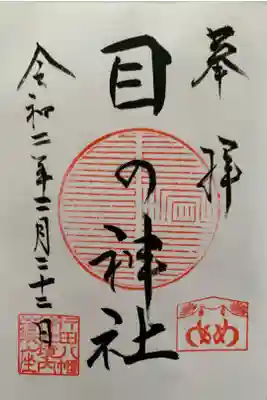 奉拝
目の神社
令和二年二月二十二日
め